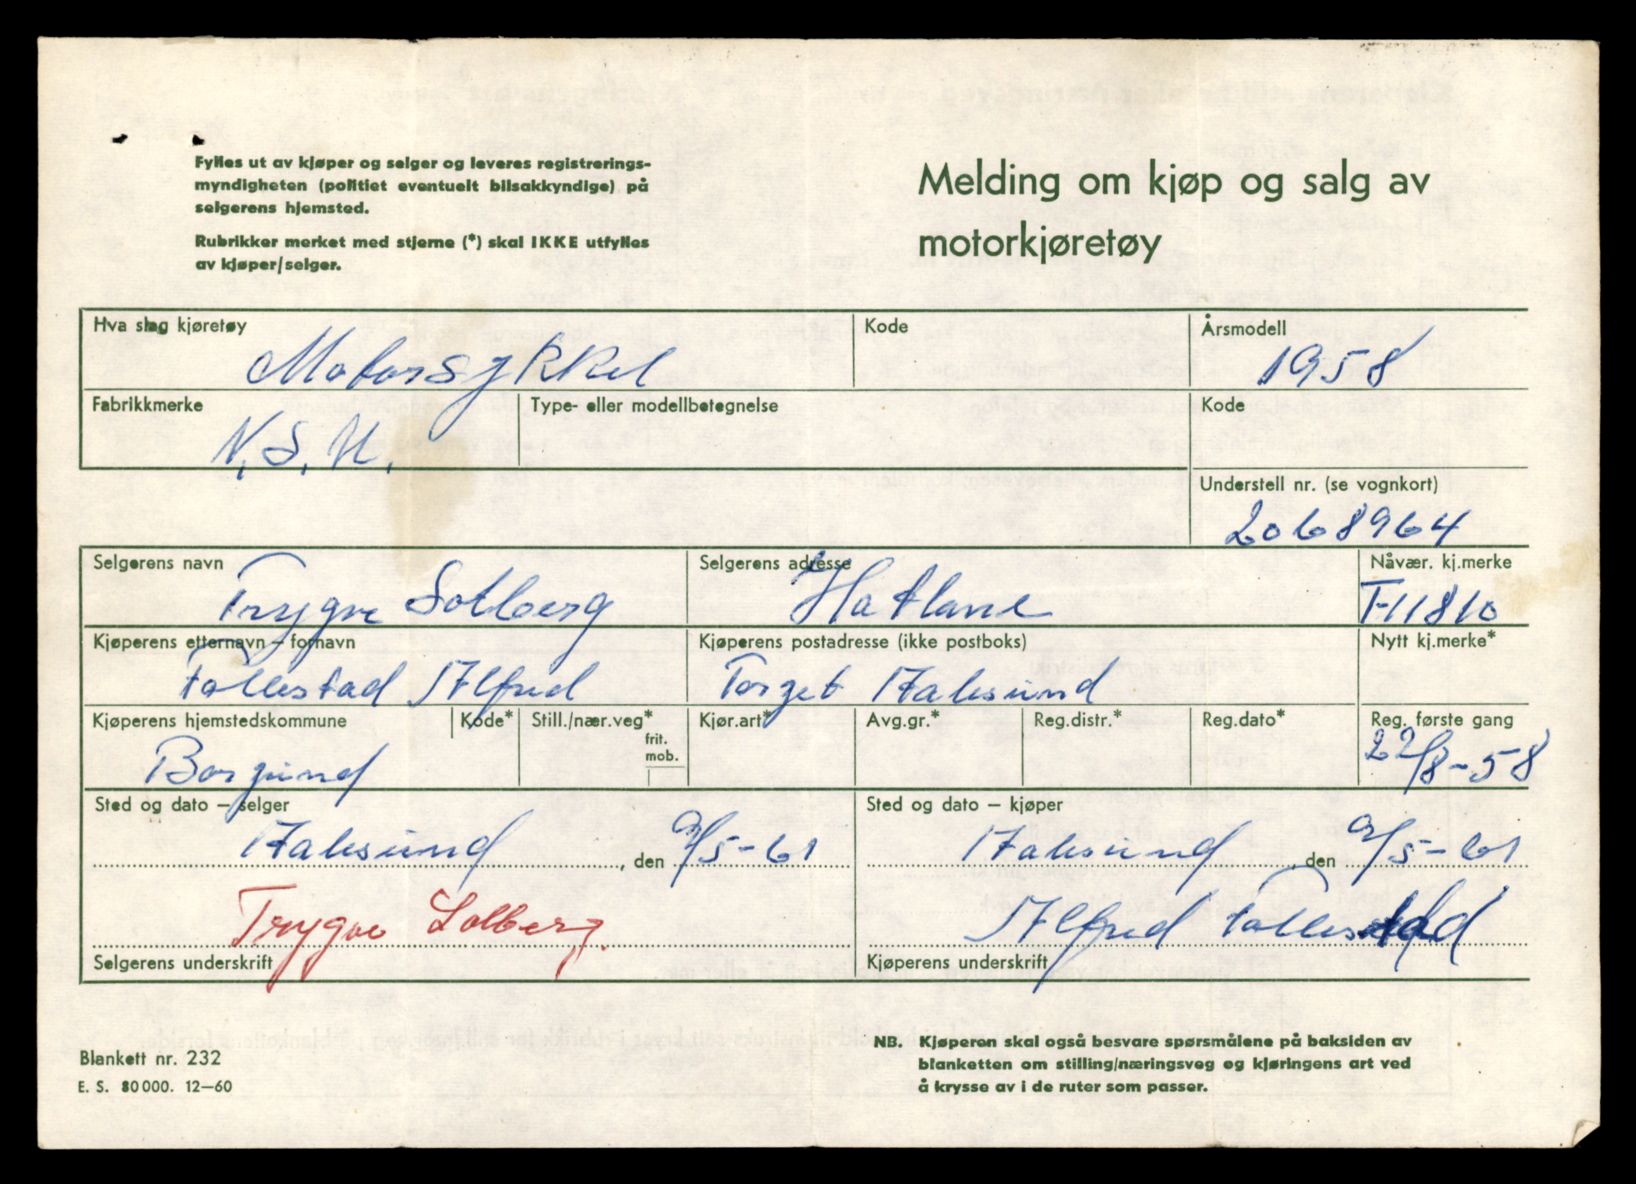 Fylles ut av kjøper og selger og leveres registrerings-
myndigheten (politiet eventuelt bilsakkyndige) på
selgerens hjemsted.
Rubrikker merket med stjerne (*) skal IKKE utfylles
av kjøper/selger.
Melding om kjøp og salg av
motorkjøretøy
Hva slag kjøretøy
Motorsykkel
Kode
Årsmodell
1958
Fabrikkmerke
N.S.U.
Type- eller modellbetegnelse
Kode
Understell nr. (se vognkort)
2068964
Selgerens navn
Trygve Solberg
Selgerens adresse
Hatlane
Nåvær. kj.merke
T-11810
Kjøperens etternavn – fornavn
Follestad Alfred
Kjøperens postadresse (ikke postboks)
Torget Aalesund
Nytt kj.merke*
Kjøperens hjemstedskommune
Borgund
Kode*
Still./nær.veg*
frit.
mob.
Kjør.art*
Avg.gr.*
Reg.distr.*
Reg.dato*
Reg. første gang
22/8-58
Sted og dato – selger
Aalesund, den 9/5-61
Trygve Solberg.
Selgerens underskrift
Sted og dato – kjøper
Aalesund den 9/5-61
Alfred Follestad
Kjøperens underskrift
Blankett nr. 232
E. S. 80000. 12–60
NB. Kjøperen skal også besvare spørsmålene på baksiden av
blanketten om stilling/næringsveg og kjøringens art ved
å krysse av i de ruter som passer.